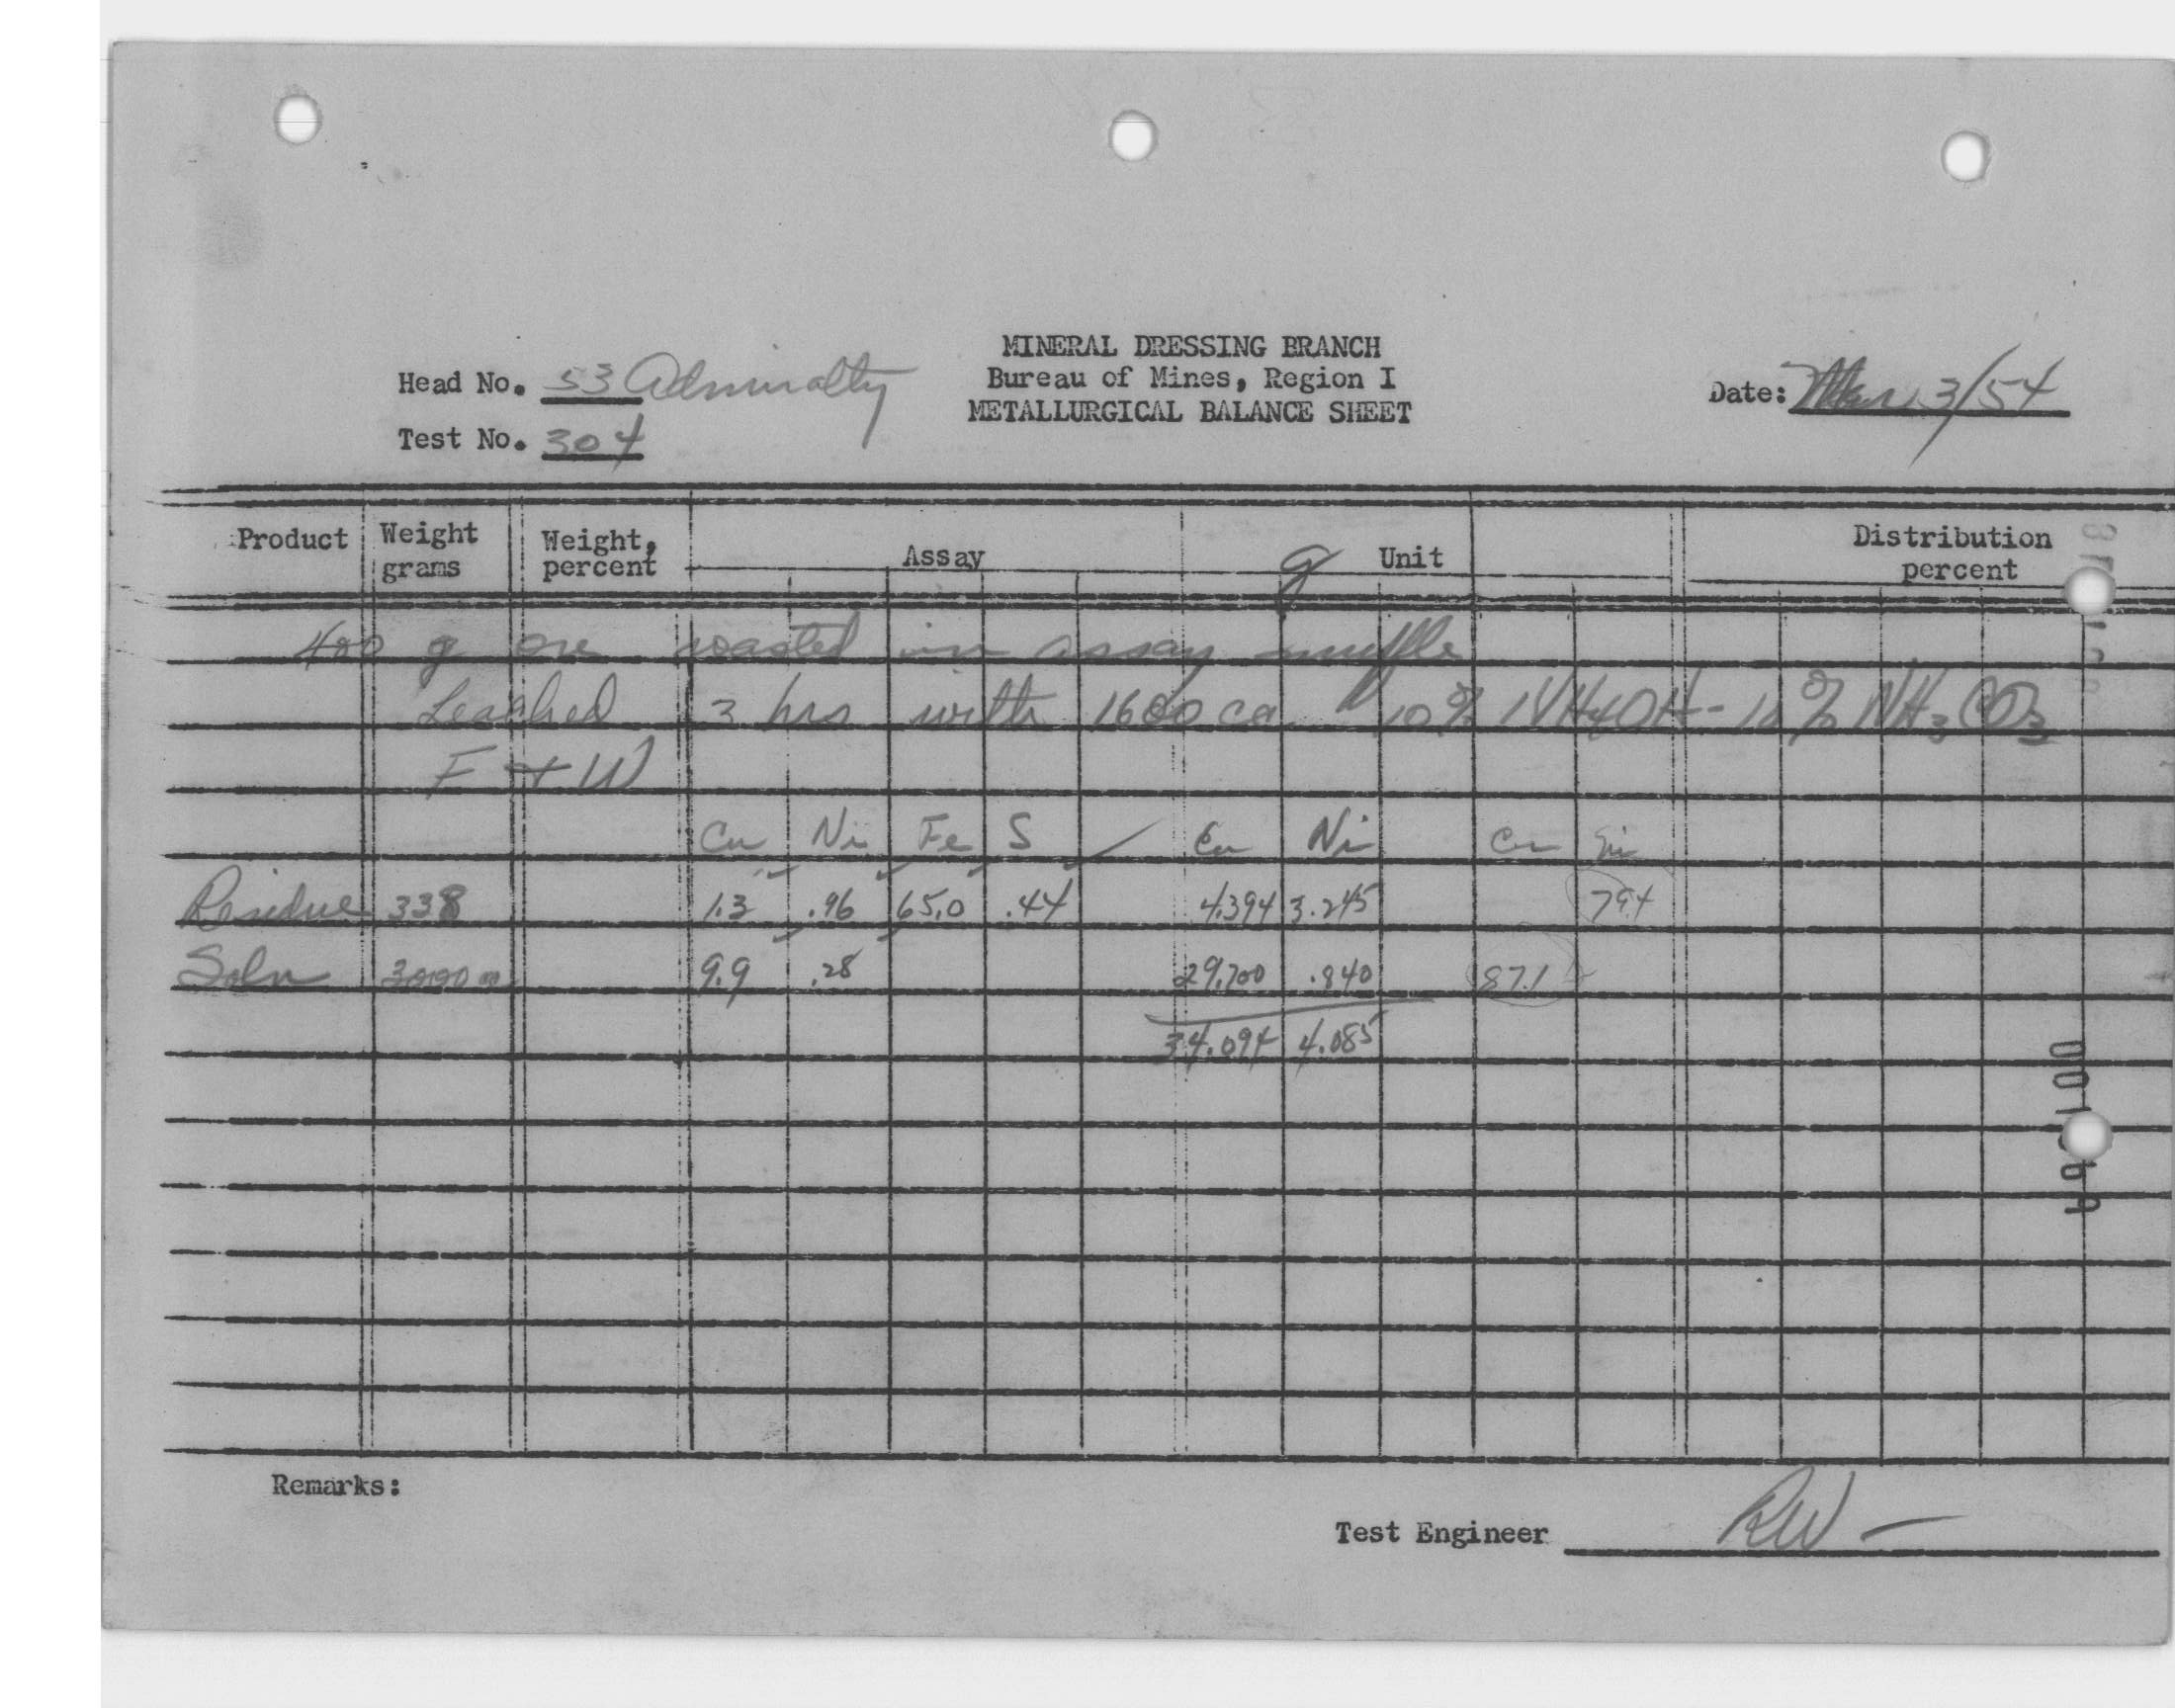 MINERAL DRESSING BRANCH
Head No. 53 Admiralty Bureau of Mines, Region I Date: Mar 3/54
METALLURGICAL BALANCE SHEET
Test No. 304
Product Weight grams Weight, percent Assay g Unit Distribution percent
400 g ore roasted in assay muffle
Leached 3 hrs with 1600 cc 10% NH4OH - 10% NH3CO3
F + W
Cu Ni Fe S Cu Ni Cu Ni
Residue 338 1.3 .96 65.0 .44 4.394 3.245 79.4
Soln 3000 9.9 .28 29.700 .840 87.1
34.094 4.085
Remarks:
Test Engineer RW